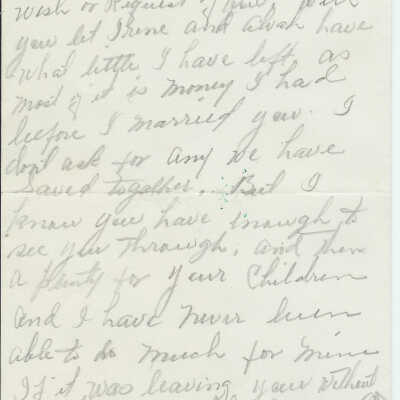 Wish or Request of mine, will
you let Irene and Avah have
what little I have left, as
most of it is money I had
before I married you. I
don't ask for any we have
saved together.. But I
know you have enough to
see you through, and then
a plenty for your children
and I have never been
able to do much for mine
If it was leaving you without